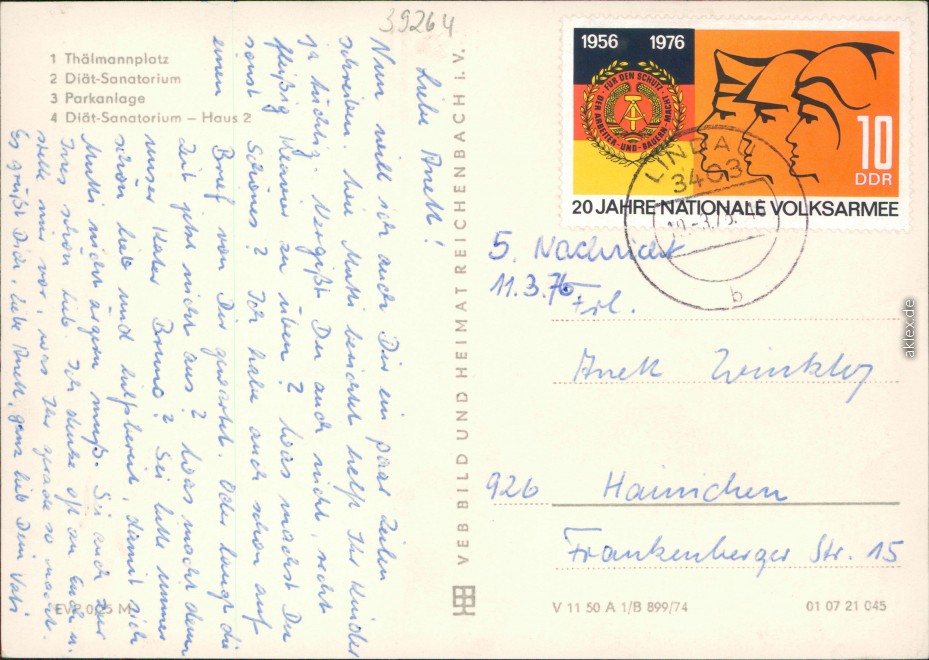 39264
1 Thälmannplatz
2 Diät-Sanatorium
3 Parkanlage
4 Diät-Sanatorium – Haus 2
EVP 0,25 M
Liebe Anett!
Nun will ich auch Dir ein paar Zeilen
schreiben. Wie Mutti berichtet helft Ihr Kinder
ja tüchtig. Vergißt Du auch nicht, recht
fleißig Klavier zu üben? Was machst Du
sonst Schönes? Ich habe auch schon auf
einen Brief von Dir gewartet. Oder langt die
Zeit jetzt nicht aus? Was macht denn
unser Kater Bruno? Sei bitte immer
schön lieb und hilfsbereit, damit sich
Mutti nicht ärgern muß. Sei auch zur
Ines schön lieb. Ich denke oft an Euch u.
stelle mir vor, was Ihr grade so macht.
Es grüßt Dich, liebe Anett, ganz lieb Dein Vati
VEB BILD UND HEIMAT REICHENBACH i. V.
1956 1976
FÜR DEN SCHUTZ DER ARBEITER-UND-BAUERN-MACHT
10
DDR
20 JAHRE NATIONALE VOLKSARMEE
LINDAU
3403
b
5. Nachricht
11.3.76
Frl.
Anett Winkler
926 Hainichen
Frankenberger Str. 15
V 11 50 A 1/B 899/74
01 07 21 045
aklex.de